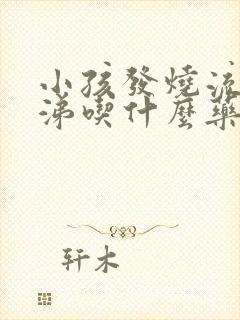 小孩發燒流
涕喫什麼藥
轩木